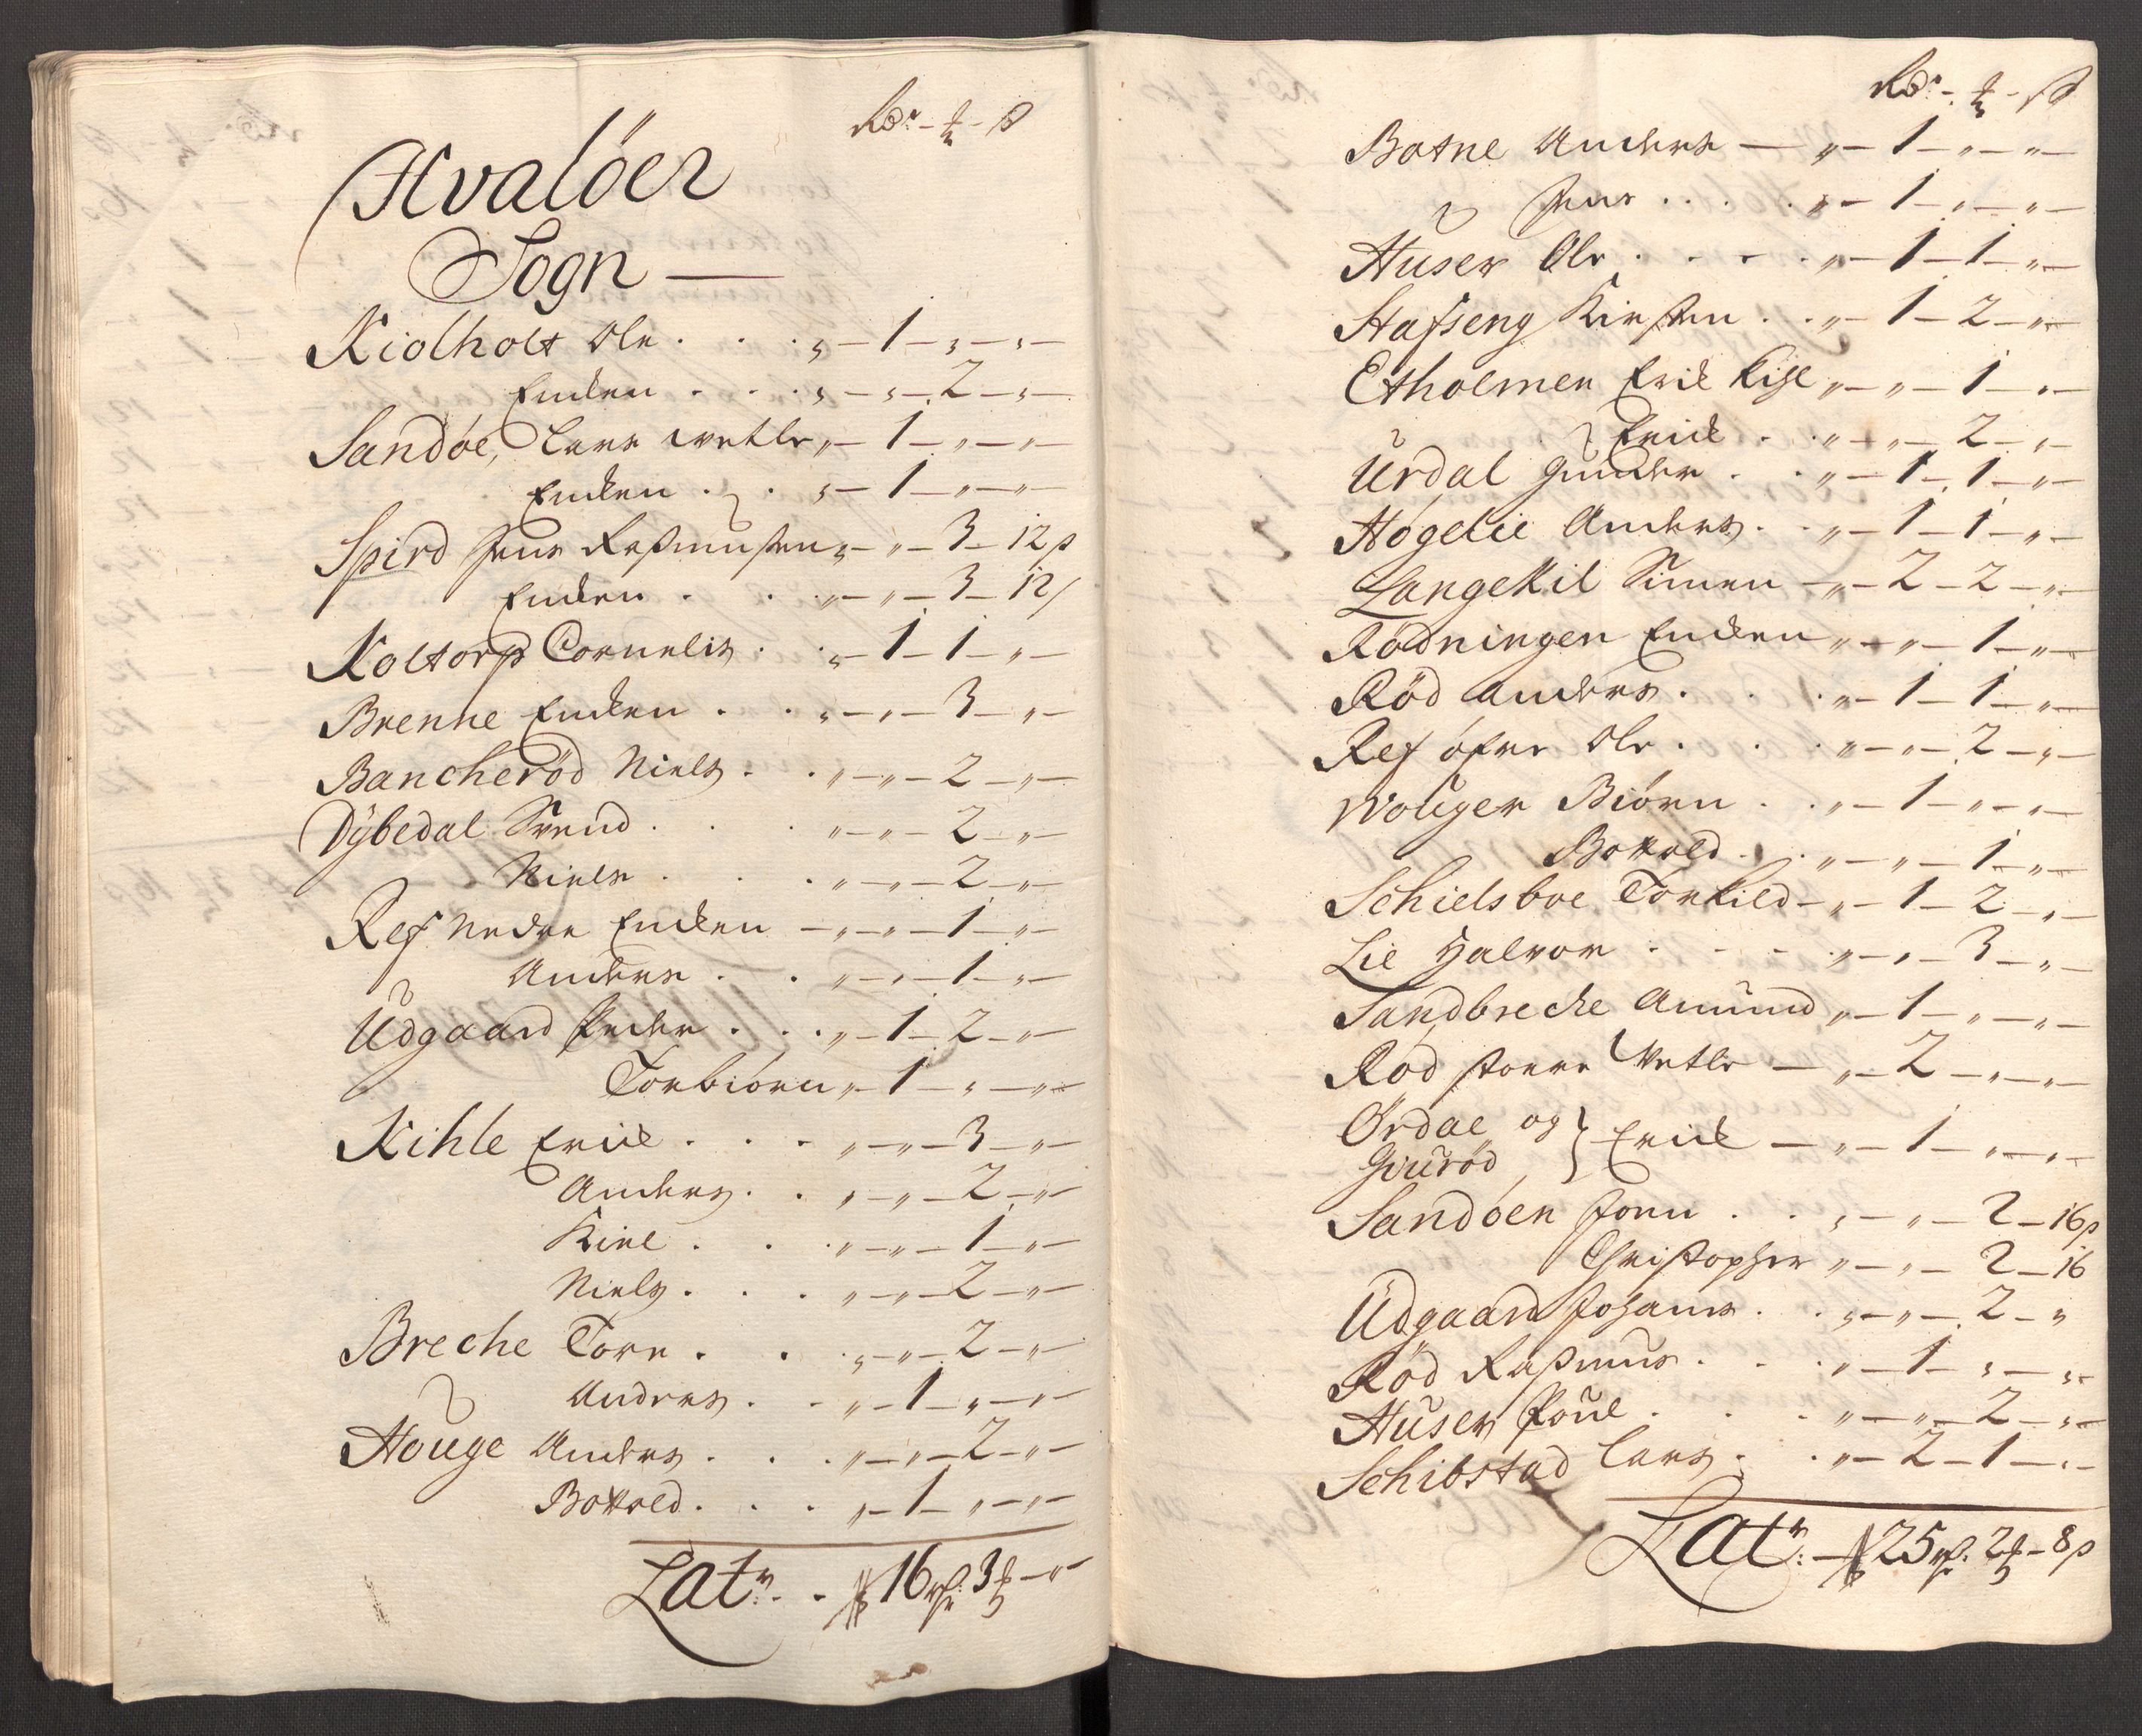 Rdr - ʒ - ß
Hvalöer
Sogn —
Kiolholt Ole . . . „ — 1 — „ — „ —
Encken . . . „ — „ — 2 — „ —
Sandöe, Lars wetle „ — 1 — „ — „ —
Encken . . „ — 1 — „ — „ —
Spird Jens Rasmusen „ — „ — 3 — 12 ß
Encken . . „ — „ — 3 — 12 /
Koltorp Cornelis . . „ — 1 — 1 — „ —
Brenne Encken . . „ — „ — 3 — „ —
Bancheröd Niels . . „ — „ — 2 — „ —
Dÿbedal Svend . . . „ — „ — 2 — „ —
Niels . . . „ — „ — 2 — „ —
Ref nedre Encken — „ — „ — 1 — „ —
Anders . . „ — „ — 1 — „ —
Udgaard Peder . . . „ — 1 — 2 — „ —
Torbiörn „ — 1 — „ — „ —
Kihle Erick . . . „ — „ — 3 — „ —
Anders . . „ — „ — 2 — „ —
Kiel . . . „ — „ — 1 — „ —
Niels . . . „ — „ — 2 — „ —
Breche Tore . . . „ — „ — 2 — „ —
Anders . . „ — 1 — „ — „ —
Houge Anders . . . „ — „ — 2 — „ —
Botvold . . . „ — 1 — „ — „ —
Latr: . 16 rdr: 3 ʒ — „
Rdr - ʒ - ß
Botne Anders — „ — 1 — „ — „ —
Jens . . . . „ — 1 — „ — „ —
Huser Ole . . . . „ — 1 — 1 — „ —
Stafseng Kirsten . . „ — 1 — 2 — „ —
Etholmen Erik Kihl „ — „ — 1 — „ —
Erick . . „ — „ — 2 — „ —
Urdal Gunder . . „ — 1 — 1 — „ —
Högelie Anders . . „ — 1 — 1 — „ —
Langekil Simen — „ — 2 — 2 — „ —
Rödningen Encken „ — „ — 1 — „ —
Röd Anders . . . „ — 1 — 1 — „ —
Ref öfre Ole . . . „ — „ — 2 — „ —
Wouger Biörn . . „ — 1 — „ — „ —
Botvold . . „ — „ — 1 — „ —
Schielsboe Torkild — „ — 1 — 2 — „ —
Lie Halvor . . . . „ — „ — 3 — „ —
Sandbreche Amund „ — 1 — „ — „ —
Röd store Vetle — „ — 2 — „ — „ —
Ördal og } Erick — „ — 1 — „ — „ —
Giuröd
Sandöen Jonn . . „ — „ — 2 — 16 ß
Christopher „ — „ — 2 — 16
Udgaard Johans . . „ — „ — 2 — „
Röd Rasmus . . . „ — 1 — „ — „
Huser Poul . . . „ — „ — 2 — „ —
Schibstad Lars . . „ — 2 — 1 — „ —
Latr: — 25 rdr: 2 ʒ — 8 ß